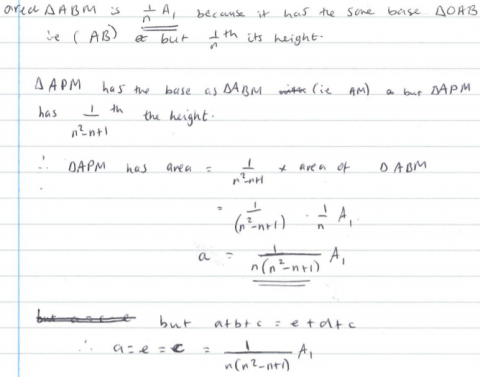 area ΔABM is 1/n A₁ because it has the same base ΔOAB
ie (AB) but 1/n th its height.
ΔAPM has the base as ΔABM (ie AM) but ΔAPM
has 1/(n²-n+1) th the height.
∴ ΔAPM has area = 1/(n²-n+1) × area of ΔABM
= 1/(n²-n+1) · 1/n A₁
a = 1/(n(n²-n+1)) A₁
but a+b+c = e+d+c
∴ a = e = c = 1/(n(n²-n+1)) A₁